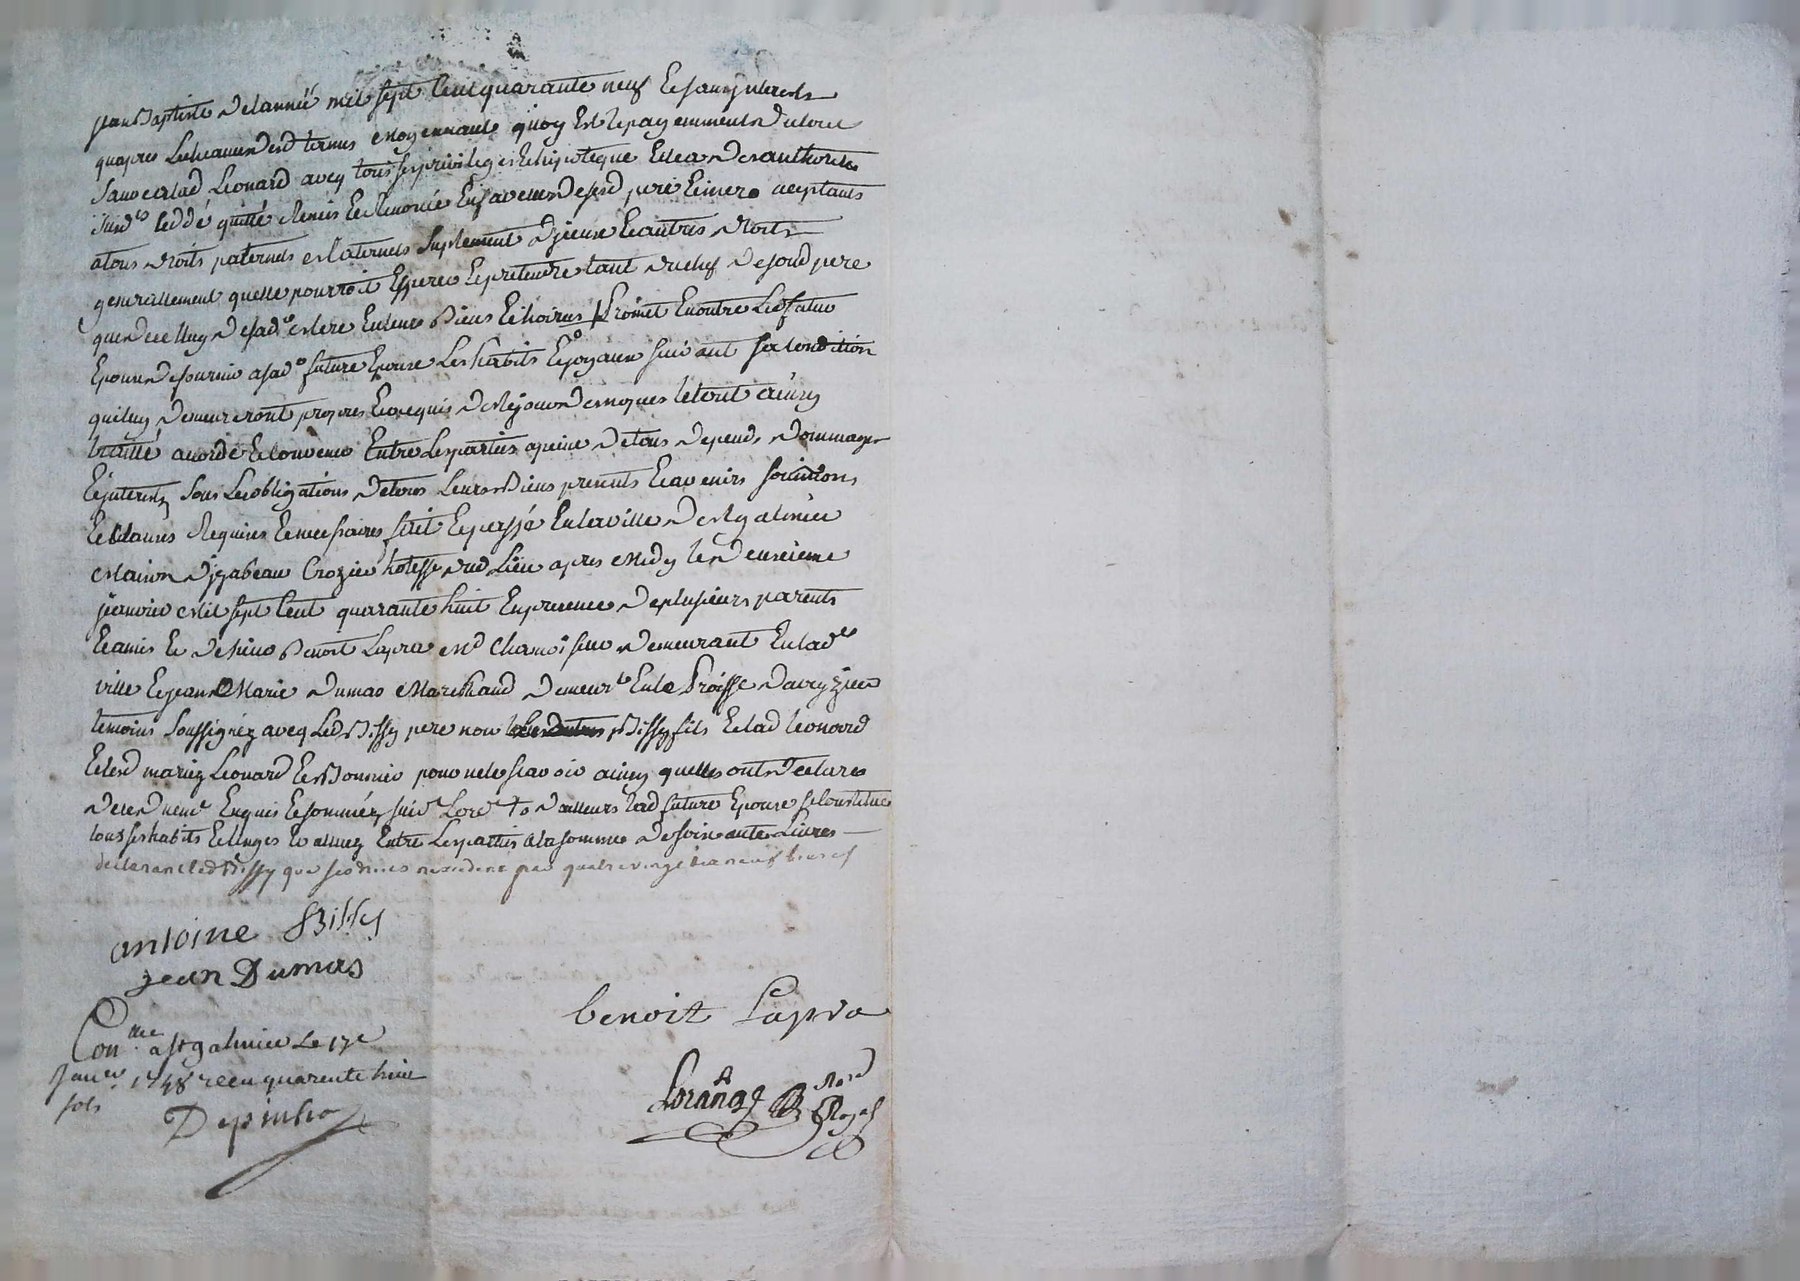 jean Baptiste de lannée mil sept cent quarante neuf et sans interets
quapres lecheance desd termes moyennant quoy et le payemment du tout
lad Leonard avecq tous ses privileges et hipoteque et de authorités
led dé quitté remis et renoncé en faveur de sesd pere et mere aceptants
a tous droits paternels maternels suplement diceux et autres droits
generallement quelle pourroit esperer et pretendre tant du chef de soud pere
que de celluy de sad e mere en leurs biens et hoiries promet en outre led futur
epoux de fournir a sad e future epouse les habits et joyaux suivant sa condition
qui luy demeureront propres et acquis de ce jour le tout ainsy
traitté acordé et convenu entre les parties a peine de tous depends dommages
et interests sous les obligations de tous leurs biens presents et avenirs soumissions
et clauses requises et necessaires fait et passé en la ville de St galmier
maison dizabeau Crozier hotesse dud lieu apres midy le deuxieme
janvier mil sept cent quarante huit en presence de plusieurs parents
et amis et de sieur Benoit Lapra md chamoiseur demeurant en lad e
ville et jean Marie dumas marchand demeurt en la Proisse daveyzieu
temoins soussignéz avecq led Bissy pere non Bissy fils et lad leonard
et lesd mariez Leonard et Bonnier pour ne le scavoir ainsy quelles ont declaré
de ce duement enquis et sommées suivt lord ce to dailleurs lad future epouse se constitue
tous ses habits et linges evaluez entre les parties a la somme de soixante livres
declarant led Bissy que ses droits nexedent pas quatre vingt dix neuf livres
antoine Bissy
jean Dumas
benoit Lapra
Con.me a St galmier Le 17e
Janer 1748 recu quarente huit
sols
Lorange Nore Royal